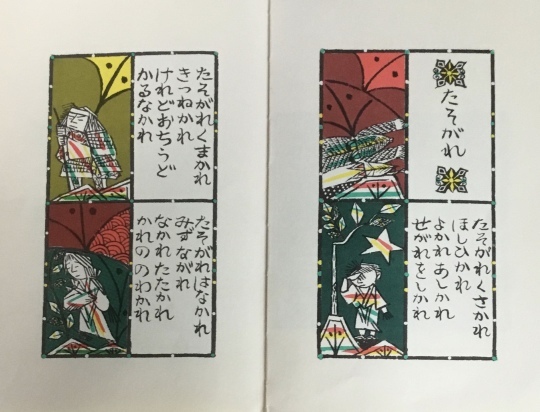 たそがれ
たそがれくさかれ
ほしひかれ
よかれあしかれ
せがれをしかれ
たそがれくまかれ
きつねかれ
けれどおちうど
かるなかれ
たそがれはなかれ
みずながれ
なかれたたかれ
かれののわかれ